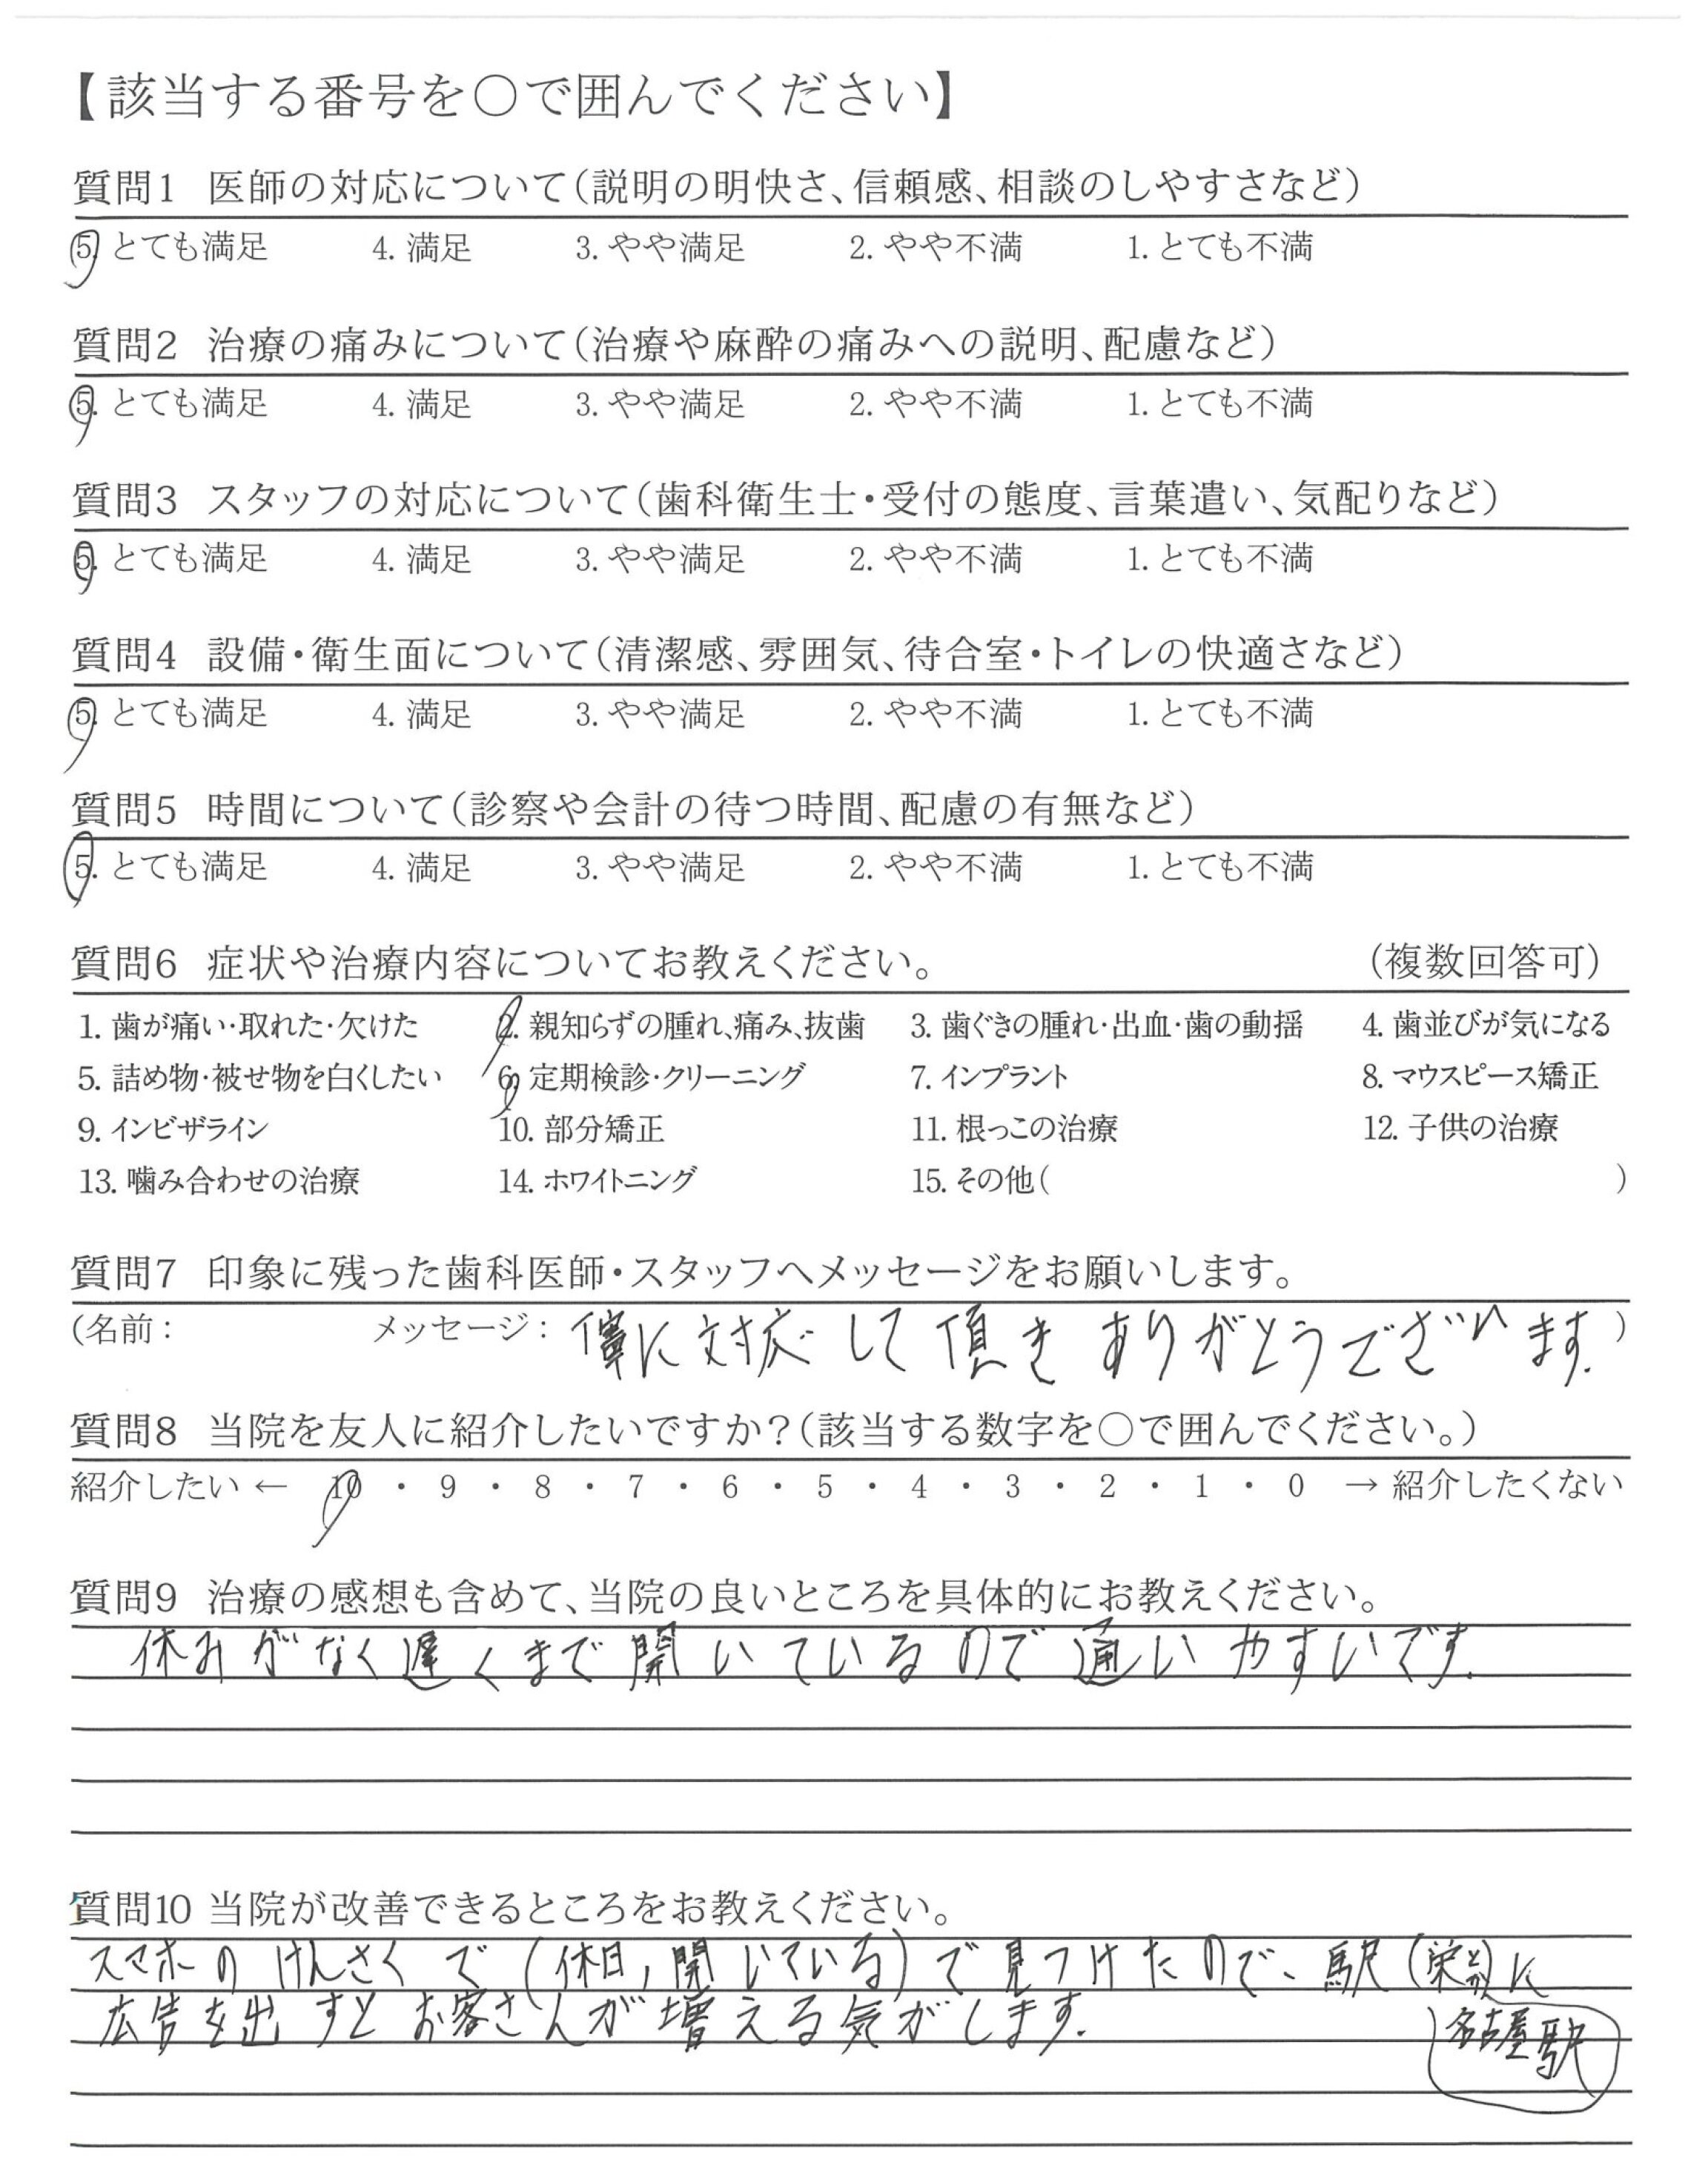 【該当する番号を〇で囲んでください】
質問1 医師の対応について(説明の明快さ、信頼感、相談のしやすさなど)
5. とても満足 4. 満足 3. やや満足 2. やや不満 1. とても不満
質問2 治療の痛みについて(治療や麻酔の痛みへの説明、配慮など)
5. とても満足 4. 満足 3. やや満足 2. やや不満 1. とても不満
質問3 スタッフの対応について(歯科衛生士・受付の態度、言葉遣い、気配りなど)
5. とても満足 4. 満足 3. やや満足 2. やや不満 1. とても不満
質問4 設備・衛生面について(清潔感、雰囲気、待合室・トイレの快適さなど)
5. とても満足 4. 満足 3. やや満足 2. やや不満 1. とても不満
質問5 時間について(診察や会計の待つ時間、配慮の有無など)
5. とても満足 4. 満足 3. やや満足 2. やや不満 1. とても不満
質問6 症状や治療内容についてお教えください。 (複数回答可)
1. 歯が痛い・取れた・欠けた 2. 親知らずの腫れ、痛み、抜歯 3. 歯ぐきの腫れ・出血・歯の動揺 4. 歯並びが気になる
5. 詰め物・被せ物を白くしたい 6. 定期検診・クリーニング 7. インプラント 8. マウスピース矯正
9. インビザライン 10. 部分矯正 11. 根っこの治療 12. 子供の治療
13. 噛み合わせの治療 14. ホワイトニング 15. その他( )
質問7 印象に残った歯科医師・スタッフへメッセージをお願いします。
(名前: メッセージ: に対応して頂きありがとうございます。)
質問8 当院を友人に紹介したいですか?(該当する数字を〇で囲んでください。)
紹介したい ← 10 ・ 9 ・ 8 ・ 7 ・ 6 ・ 5 ・ 4 ・ 3 ・ 2 ・ 1 ・ 0 → 紹介したくない
質問9 治療の感想も含めて、当院の良いところを具体的にお教えください。
休みがなく遅くまで開いているので通いやすいです。
質問10 当院が改善できるところをお教えください。
スマホのけんさくで(休日,開いている)で見つけたので、駅(栄)に
広告を出すとお客さんが増える気がします。
名古屋駅